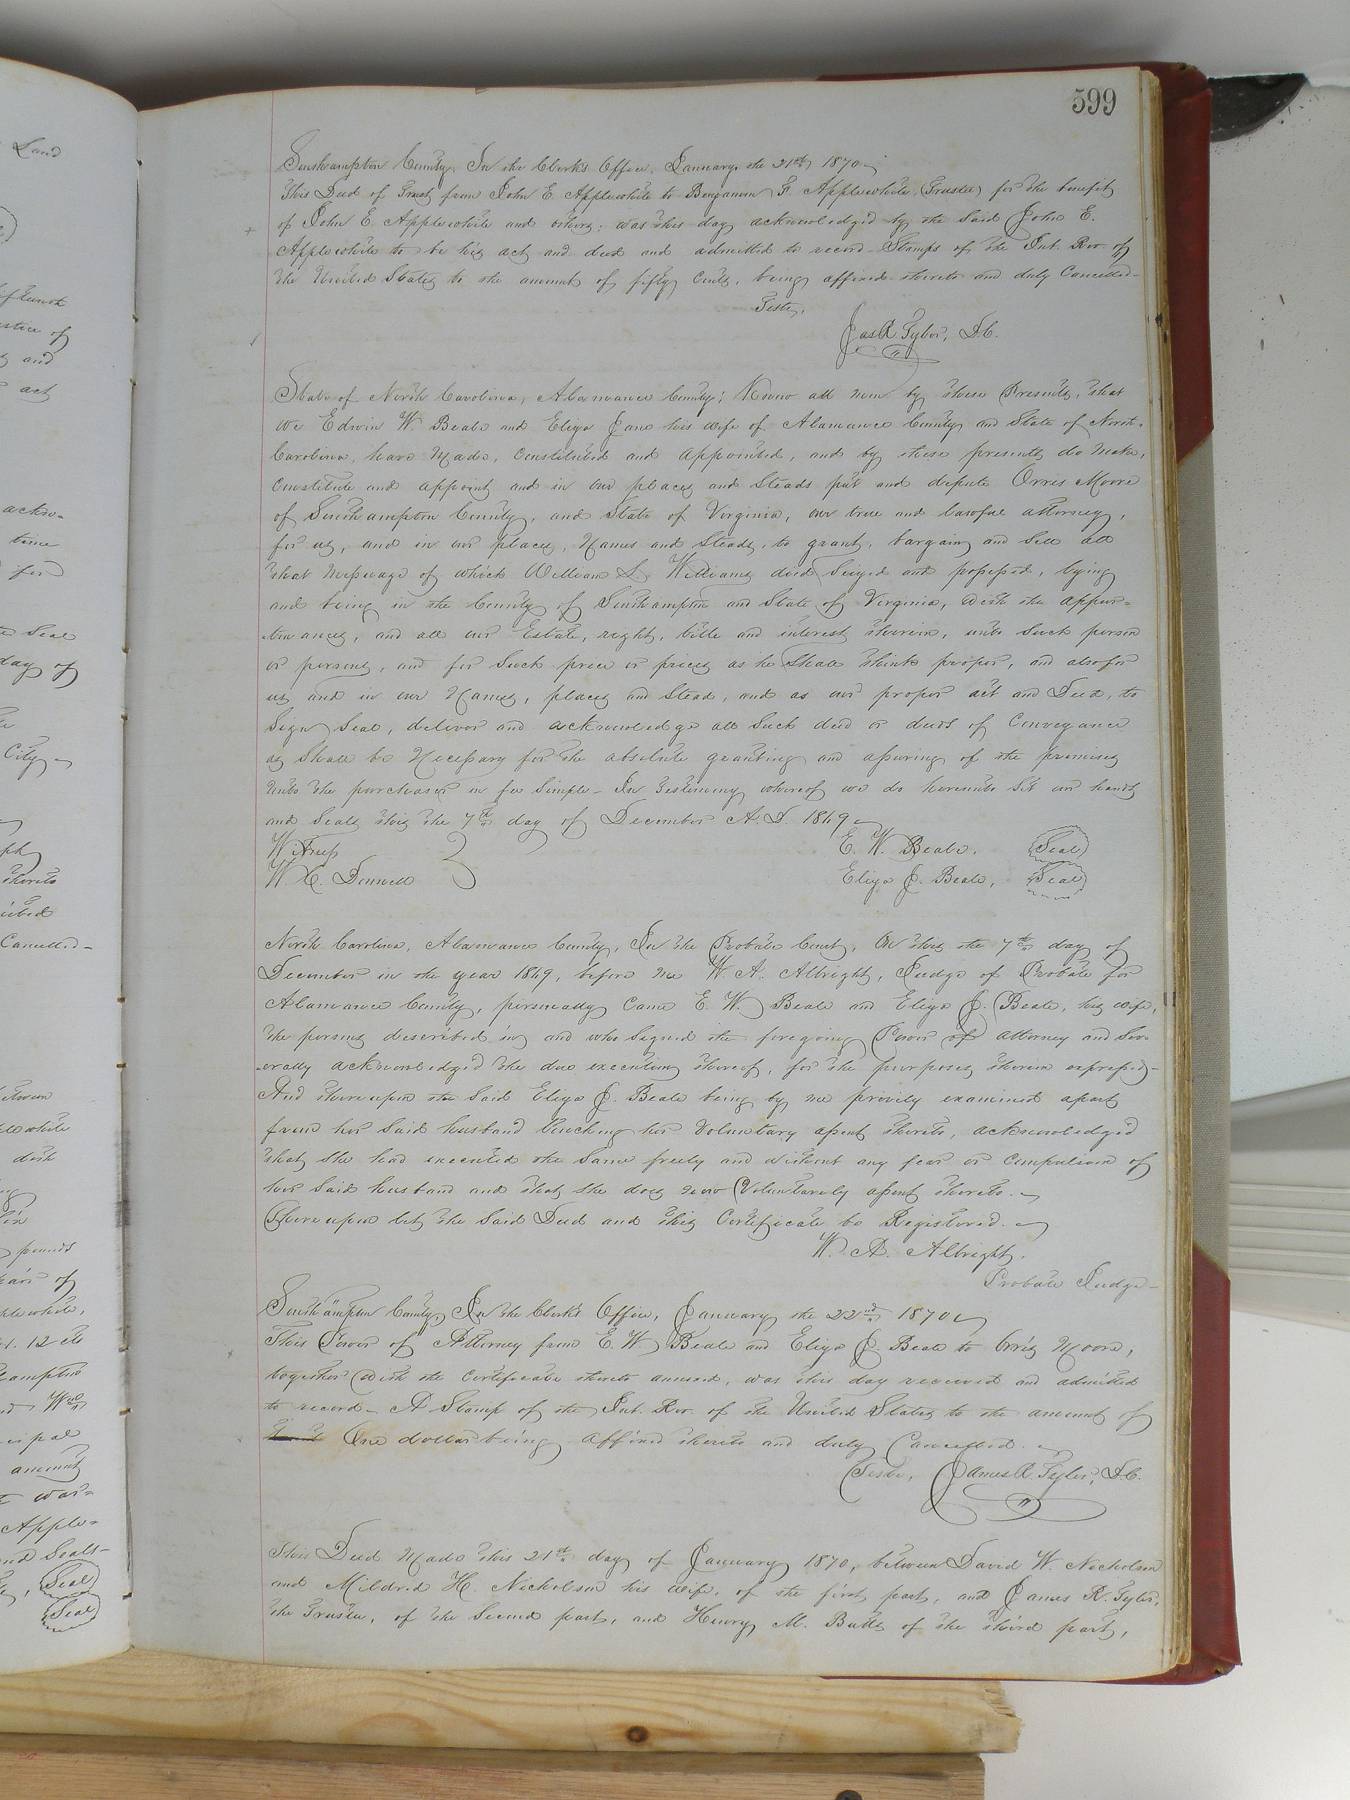 599
Southampton County, In the Clerk's Office, January the 21st 1870
This Deed of Trust from John E. Applewhite to Benjamin F. Applewhite (Trustee) for the benefit
of John E. Applewhite and others; was this day acknowledged by the said John E.
Applewhite to be his act and deed and admitted to record - Stamps of the Int. Rev. of
the United States to the amount of fifty cents, being affixed thereto and duly Cancelled -
Teste,
Jas R. Tyler, D.C.
State of North Carolina, Alamance County; Know all men by these Presents, that
we Edwin W. Beale and Eliza Jane his wife of Alamance County and State of North
Carolina, have Made, Constituted and appointed, and by these presents do make,
Constitute and appoint and in our places and Steads put and depute Orris Moore
of Southampton County, and State of Virginia, our true and lawful attorney,
for us, and in our places, Names and Steads, to grant, bargain and Sell all
that Messuage of which William S. Williams died Seized and possessed, lying
and being in the County of Southampton and State of Virginia, with the appur=
tenances, and all our Estate, right, title and interest therein, unto such person
or persons, and for such price or prices as he Shall think proper, and also for
us and in our Names, places and Stead, and as our proper act and Deed, to
Sign Seal, deliver and acknowledge all Such deed or deeds of Conveyance
as Shall be Necessary for the absolute granting and assuring of the premises
Unto the purchaser in fee simple - In Testimony whereof we do hereunto Set our hands
and Seals this the 7th day of December A.D. 1869
Witness
E. W. Beale. (Seal)
W. C. Donnell
Eliza J. Beale, (Seal)
North Carolina, Alamance County, In the Probate Court, On this the 7th day of
December in the year 1869, before me W. A. Albright, Judge of Probate for
Alamance County, personally Came E. W. Beale and Eliza J. Beale, his wife,
the persons described in, and who Signed the foregoing Power of attorney and Sev=
erally acknowledged the due execution thereof, for the purposes therein expressed -
And thereupon the Said Eliza J. Beale being by me privily examined apart
from her Said husband touching her Voluntary assent thereto, acknowledged
that She had executed the Same freely and without any fear or Compulsion of
her Said husband and that She does now Voluntarily assent thereto.
Thereupon let the Said Deed and this Certificate be Registered.
W. A. Albright.
Probate Judge -
Southampton County, In the Clerk's Office, January the 22nd 1870
This Power of Attorney from E. W. Beale and Eliza J. Beale to Orris Moore,
together with the Certificate thereto annexed, was this day received and admitted
to record - A Stamp of the Int. Rev. of the United States to the amount of
One dollar being affixed thereto and duly Cancelled.
Teste, James R. Tyler, D.C.
This Deed Made this 21st day of January 1870, between David W. Nicholson
and Mildred H. Nicholson his wife, of the first part, and James R. Tyler,
the Trustee, of the Second part, and Henry M. Butts of the third part,